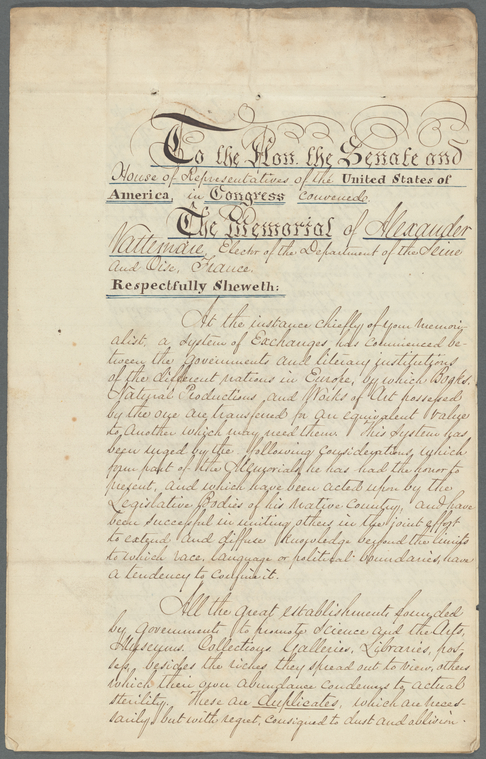 To the Hon. the Senate and
House of Representatives of the United States of
America, in Congress convened.
The Memorial of Alexander
Vattemare, Elector of the Department of the Seine
and Oise, France.
Respectfully Sheweth:
At the instance chiefly of your memori-
alist, a System of Exchanges, has commenced be-
tween the Governments and literary institutions
of the different nations in Europe, by which Books,
Natural Productions, and Works of Art possessed
by the one are transferred for an equivalent value
to another which may need them. This System has
been urged by the following considerations, which
form part of the Memorials, he has had the honor to
present, and which have been acted upon by the
Legislative Bodies of his native Country, and have
been successful in uniting others in the joint effort
to extend and diffuse knowledge beyond the limits
to which race, language or political boundaries, have
a tendency to confine it.
All the great establishments, founded
by governments to promote Science and the Arts,
Museums, Collections, Galleries, Libraries, pos-
sess, besides the riches they spread out to view, others
which their own abundance condemns to actual
sterility. These are duplicates, which are neces-
sarily, but with regret, consigned to dust and oblivion.